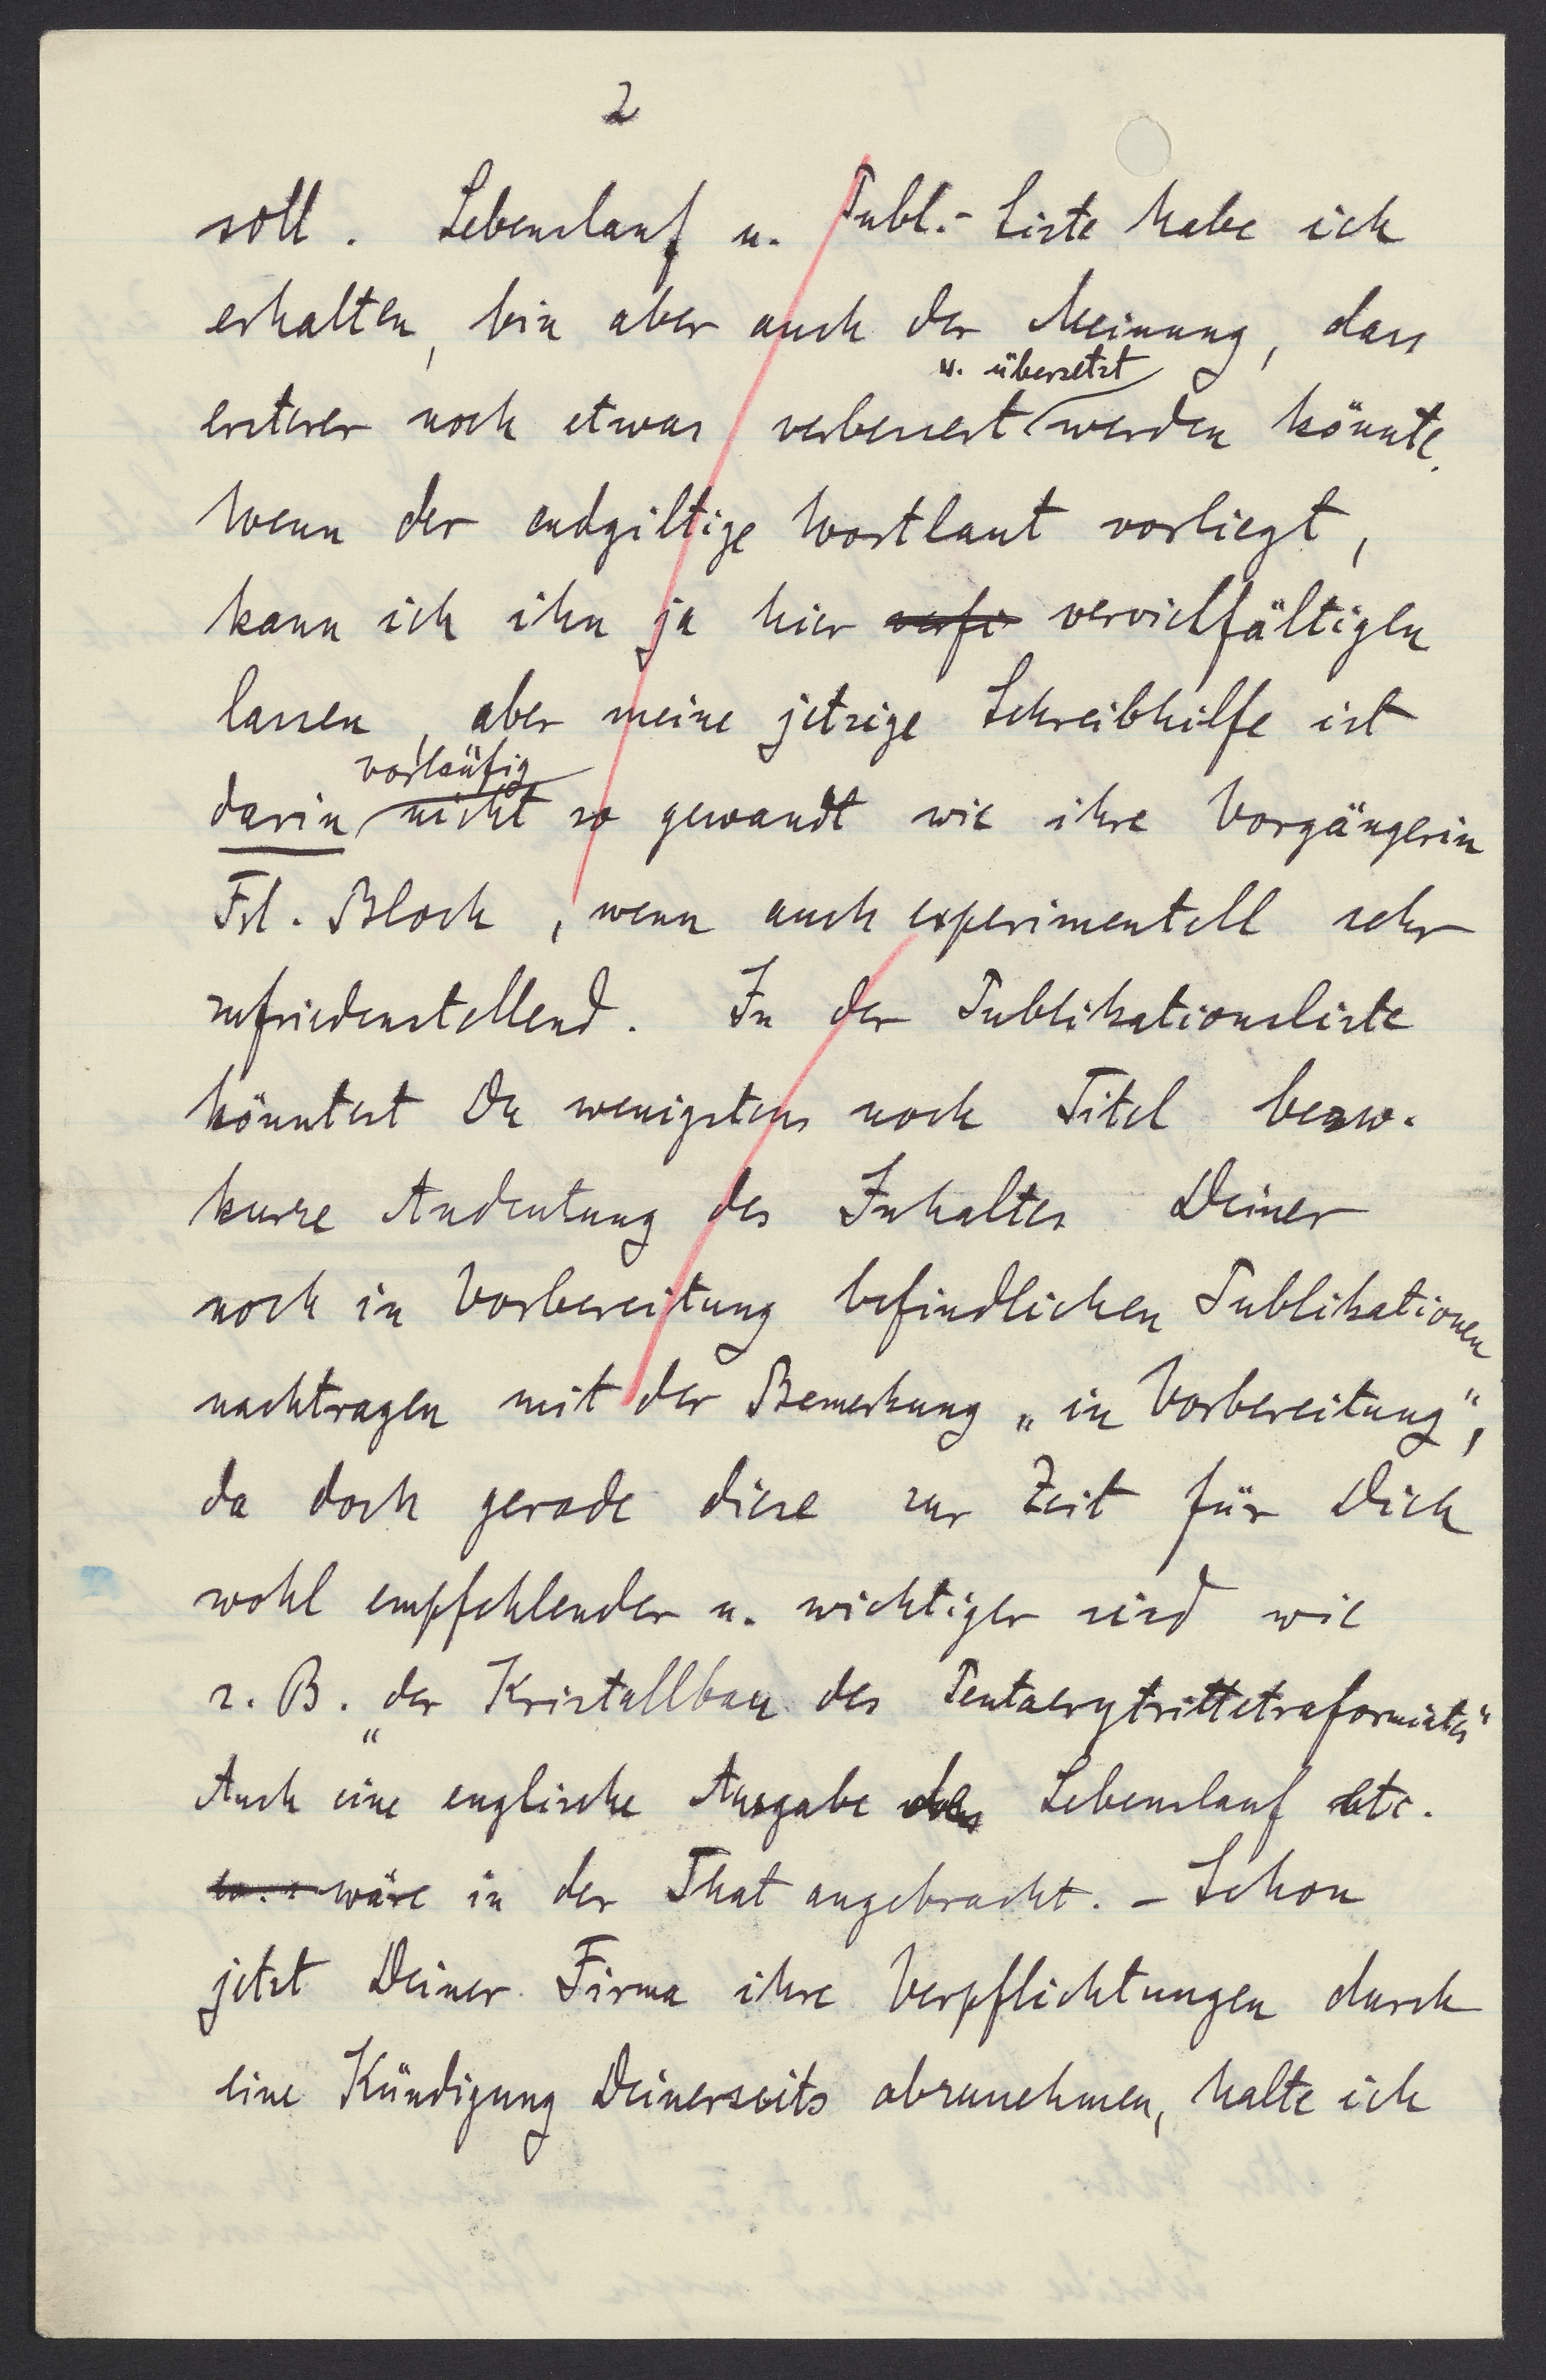 2
soll. Lebenslauf u. Publ.-Liste habe ich
erhalten, bin aber auch der Meinung, dass
u. übersetzt
ersterer noch etwas verbessert werden könnte.
Wenn der endgiltige Wortlaut vorliegt,
kann ich ihn ja hier verfi vervielfältigen
lassen, aber meine jetzige Schreibhilfe ist
vorläufig
darin nicht so gewandt wie ihre Vorgängerin
Frl. Bloch, wenn auch experimentell sehr
zufriedenstellend. In der Publikationsliste
könntest Du wenigstens noch Titel bezw.
kurze Andeutung des Inhaltes Deiner
noch in Vorbereitung befindlichen Publikationen
nachtragen mit der Bemerkung „in Vorbereitung“,
da doch gerade diese zur Zeit für Dich
wohl empfehlender u. wichtiger sind wie
z. B. „der Kristallbau des Pentaerytrittetraformiates“
Auch eine englische Ausgabe des Lebenslauf etc.
wäre in der That angebracht. – Schon
jetzt Deiner Firma ihre Verpflichtungen durch
eine Kündigung Deinerseits abzunehmen, halte ich